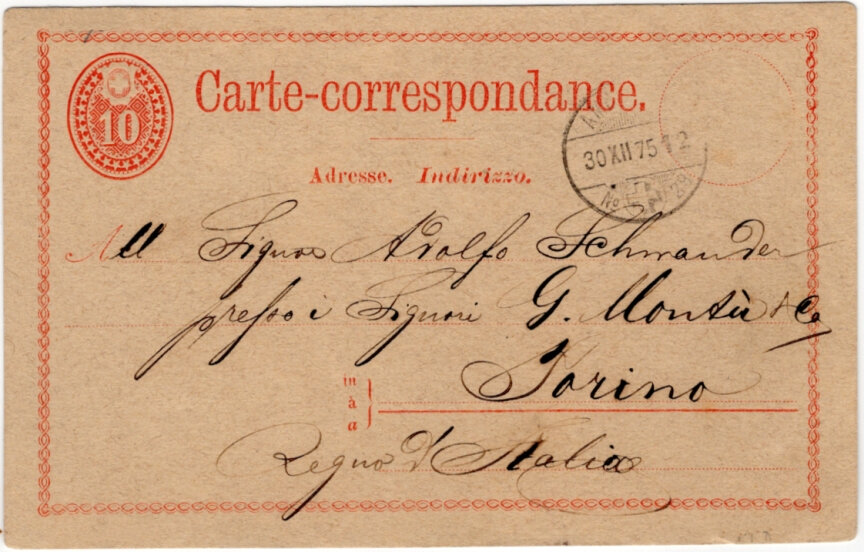 10
Carte-correspondance.
30 XII 75 12
Adresse. Indirizzo.
All Signor Adolfo Schwander
presso i Signori G. Montù & Co
in
à
a
Torino
Regno d'Italia